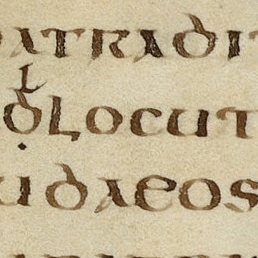 ATRADIT
DLOCUT
UDAEOS